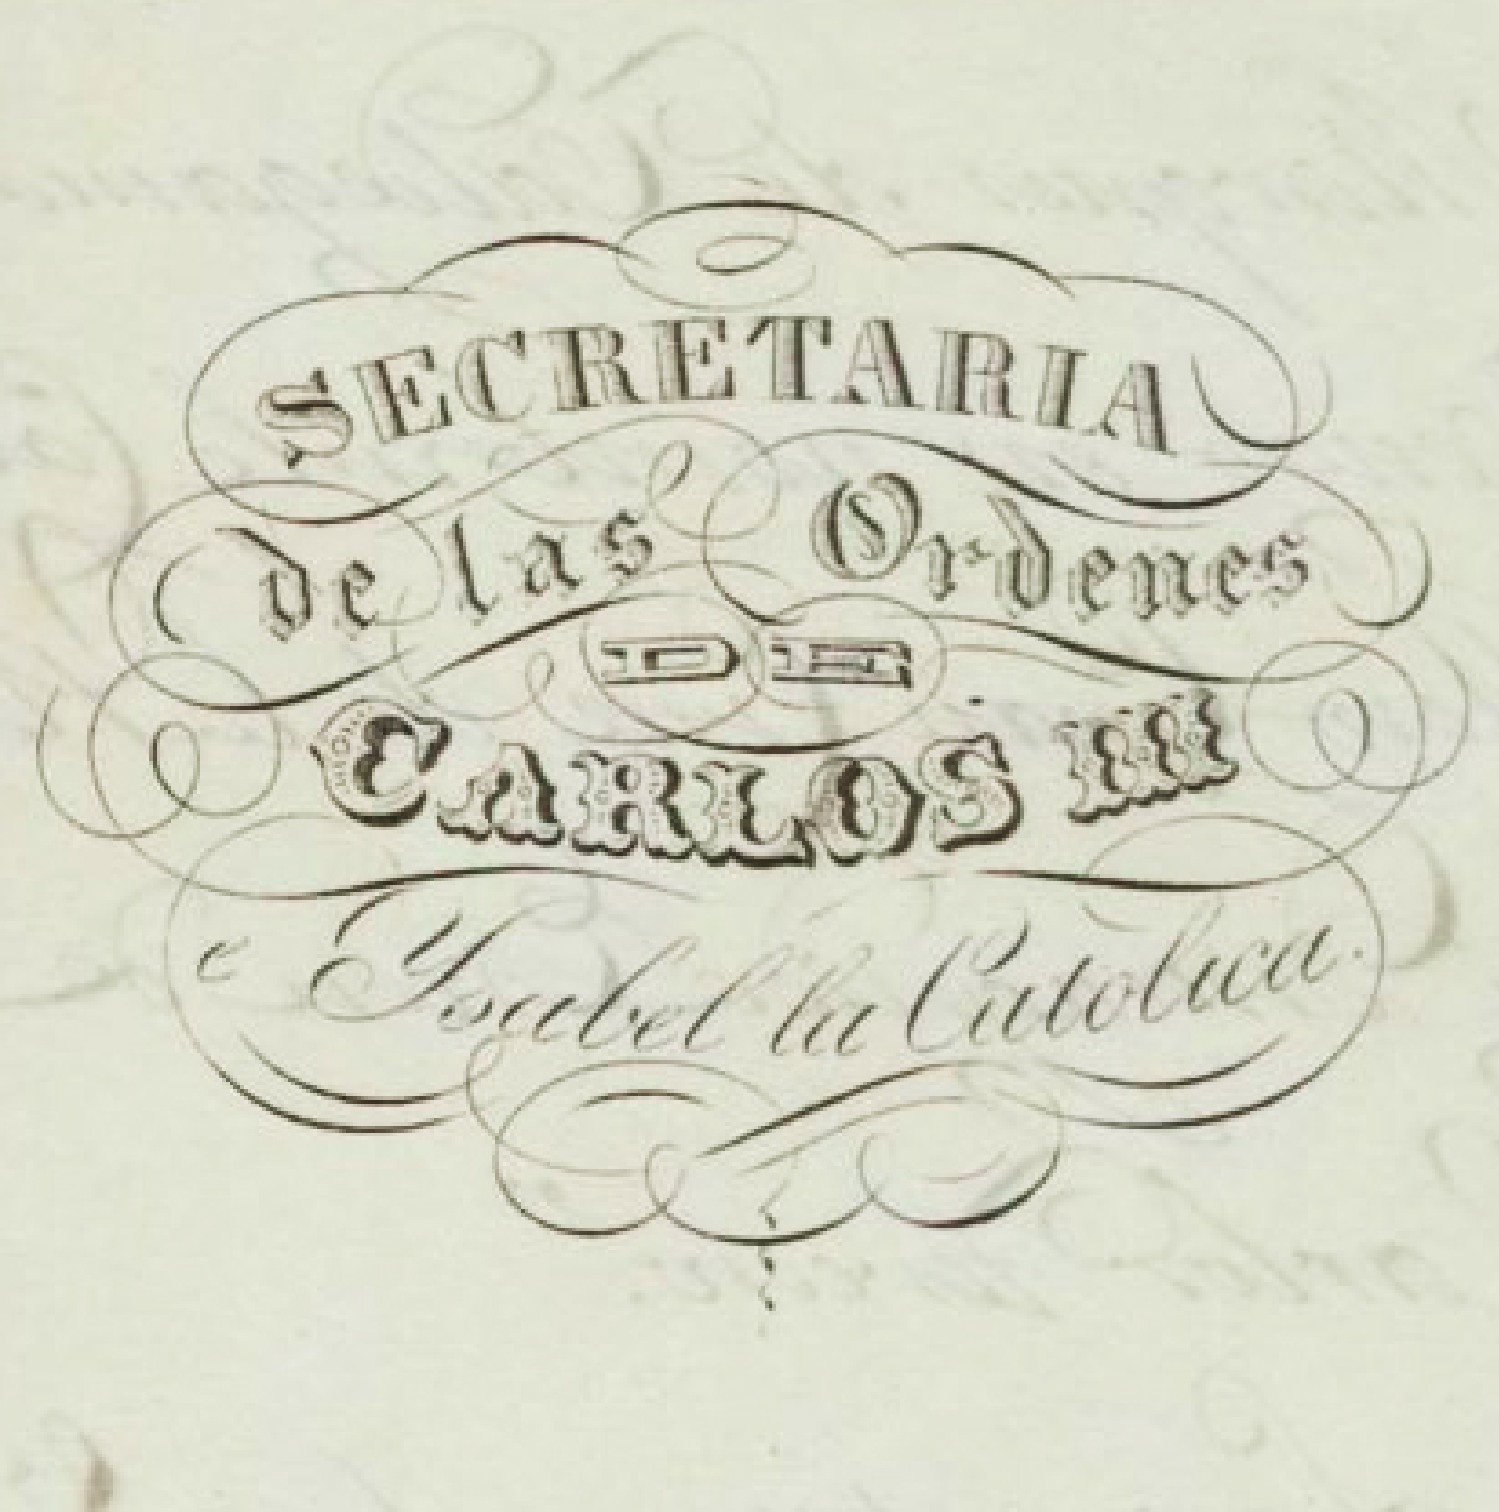 SECRETARIA
de las Ordenes
DE
CARLOS III
e Ysabel la Catolica.